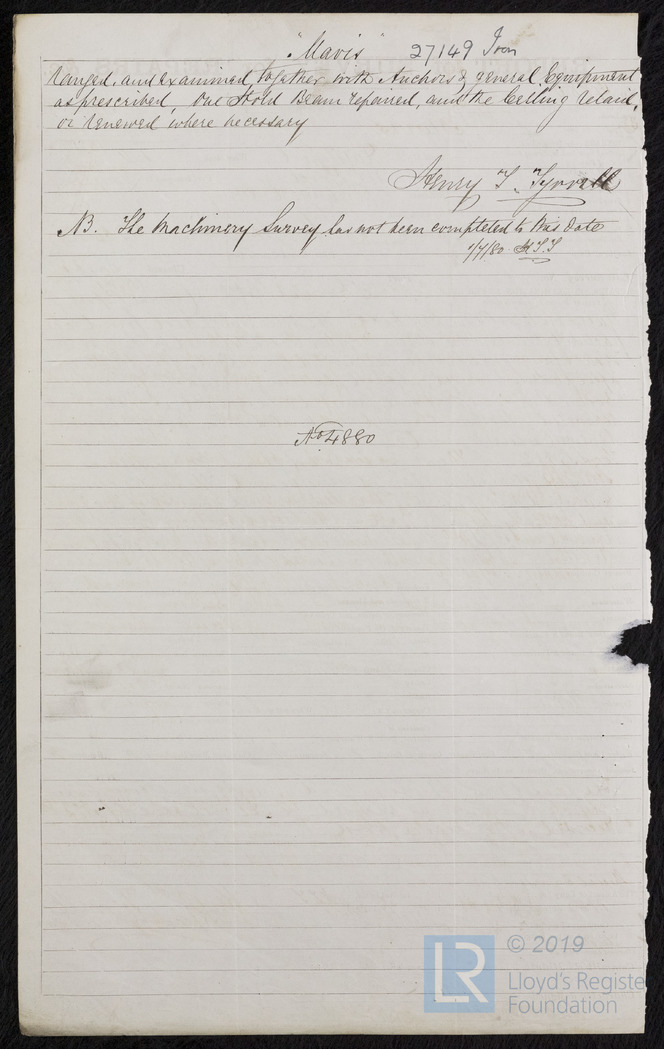 "Mavis" 27149 Iron
ranged, and examined together with Anchors & general Equipment
as prescribed, One Hold Beam repaired, and the Ceiling relaid,
or renewed where necessary
Henry T. Tyrrell
NB. The Machinery Survey has not been completed to this date
1/7/80 H.T.T
No 4880
© 2019
LR
Lloyd's Registe
Foundation